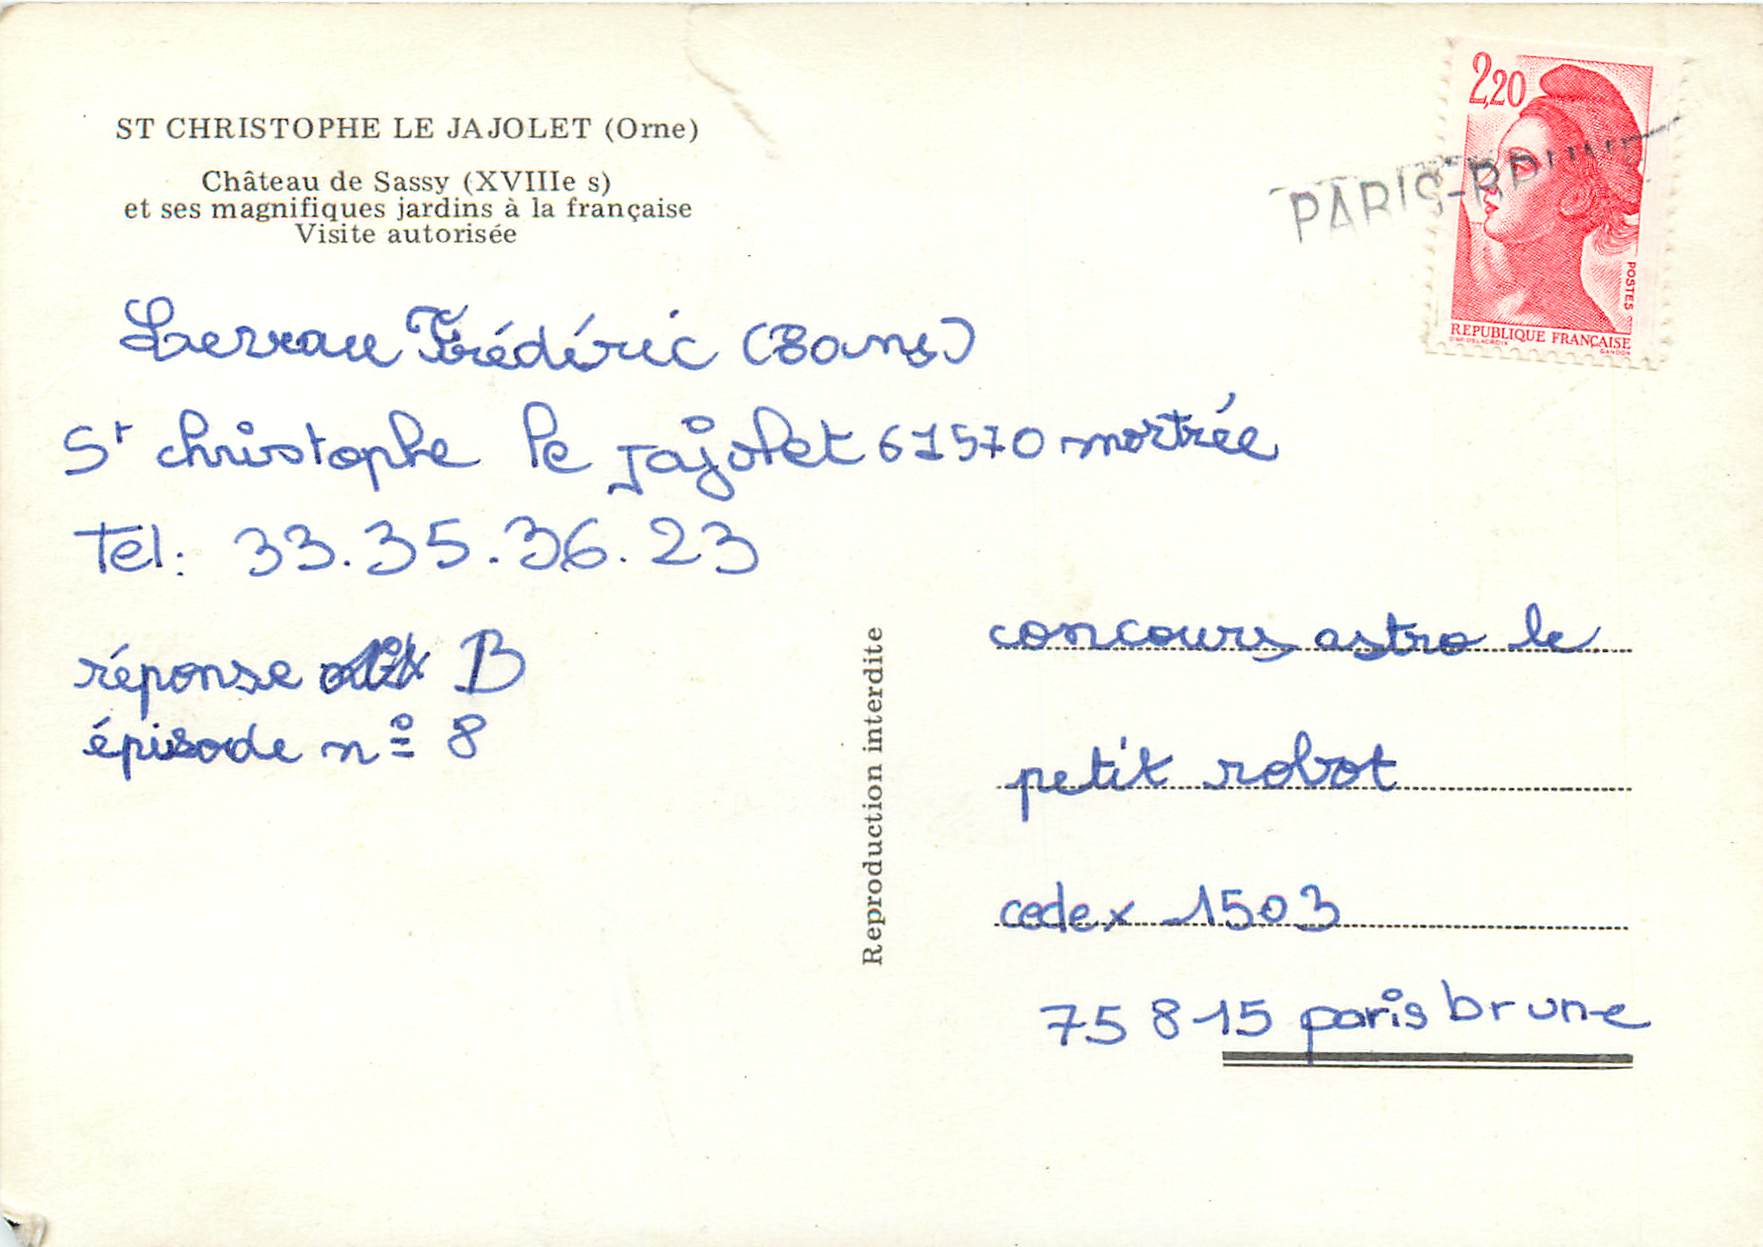 ST CHRISTOPHE LE JAJOLET (Orne)
Château de Sassy (XVIIIe s)
et ses magnifiques jardins à la française
Visite autorisée
Frédéric (8ans)
St christophe le Jajolet 61570 mortrée
Tel: 33.35.36.23
réponse B
épisode n° 8
Reproduction interdite
2,20
POSTES
REPUBLIQUE FRANÇAISE
GANDON
PARIS-BRUNE
concours astro le
petit robot
codex 1503
75 815 paris brune